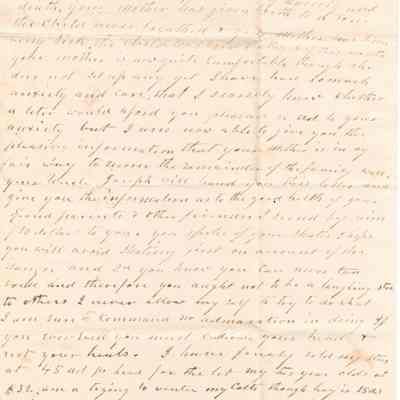 death, your Mother has given birth to a
the Child never breathed & your Mother has been
very Sick, the Child was
your Mother is now quite Comfortable though she
does not set up any yet I have had so much
anxiety and care, that I scarcely know whether
a letter would afford you pleasure or add to your
anxiety but I am now able to give you the
pleasing information that your Mother is in a
fair way to the remainder of the family well.
Joseph will hand you this letter and
give you the information as to the good health of your
Grand parents & other friends I send by him
10 dollars to you. you spoke of your Skates I hope
you will avoid Skating first on account of the
danger and 2n you know you Can never
and therefore you ought not to be a laughing stock
to others I never allow my self to try to do what
I am sure to Command no admiration in doing If
you ever you must your head &
not your heels. I have finally sold my
at 45 dol pr head for the lot my two year olds at
$32, am a trying to winter my Colts though hay is 15 dls